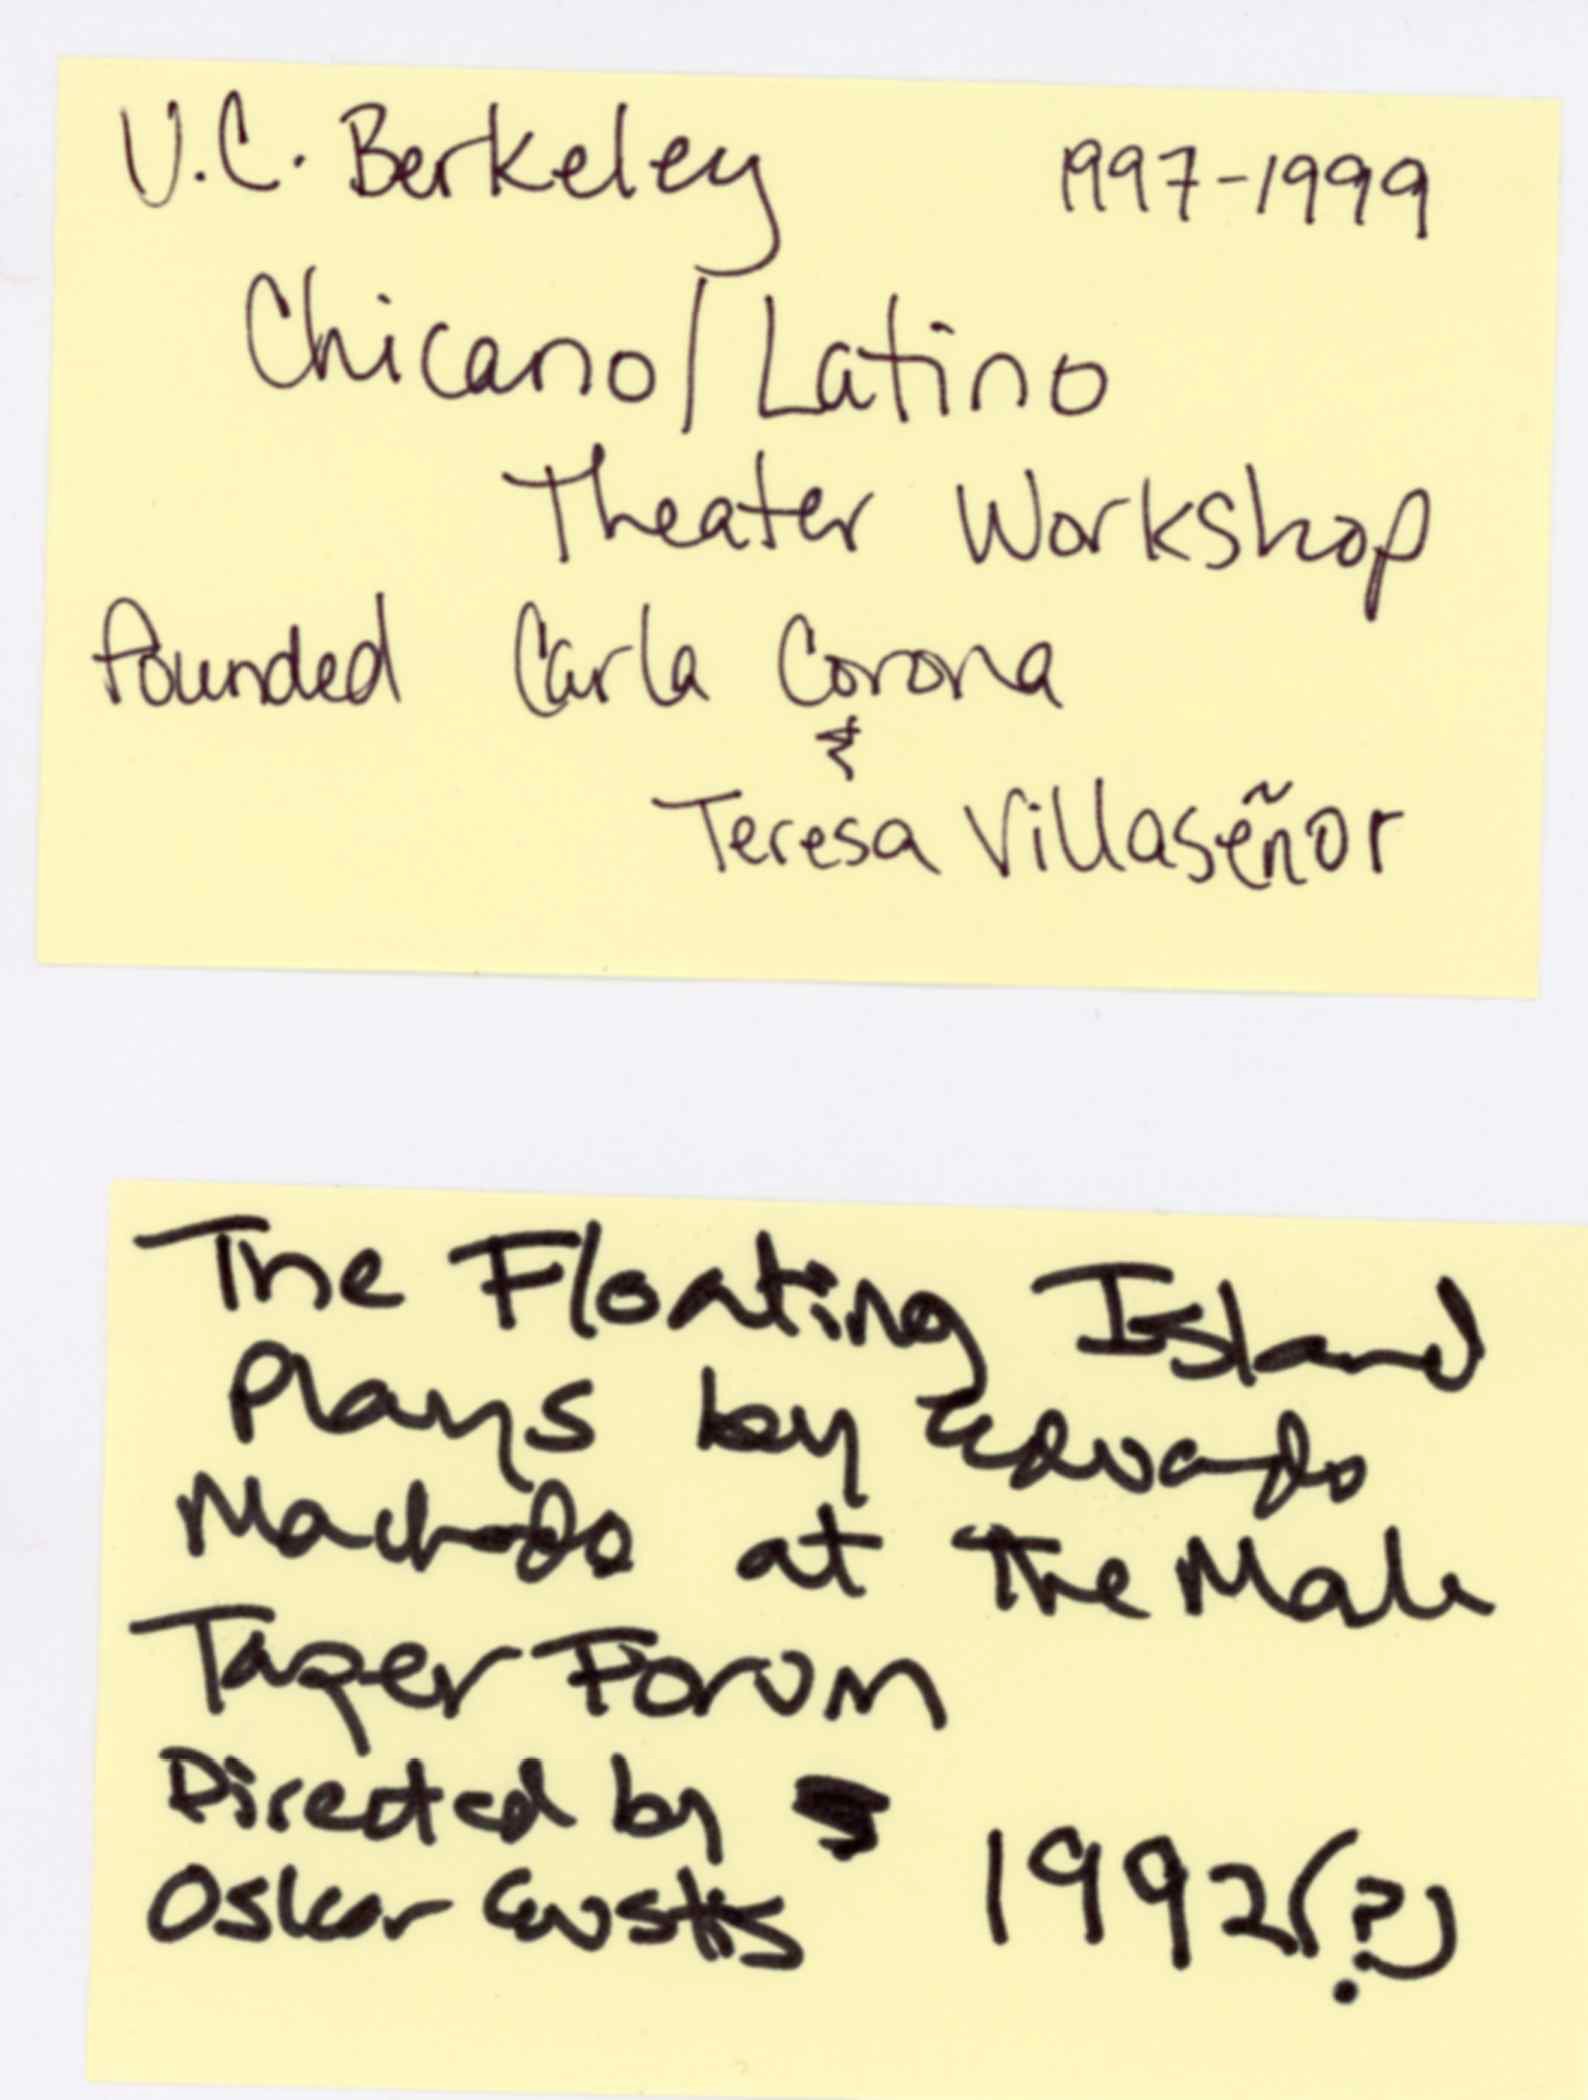 U.C. Berkeley 1997-1999
Chicano/Latino
Theater Workshop
founded Carla Corona
&
Teresa Villaseñor
The Floating Island
Plays by Eduardo
Machado at the Mark
Taper Forum
Directed by
Oskar Eustis 1992(?)